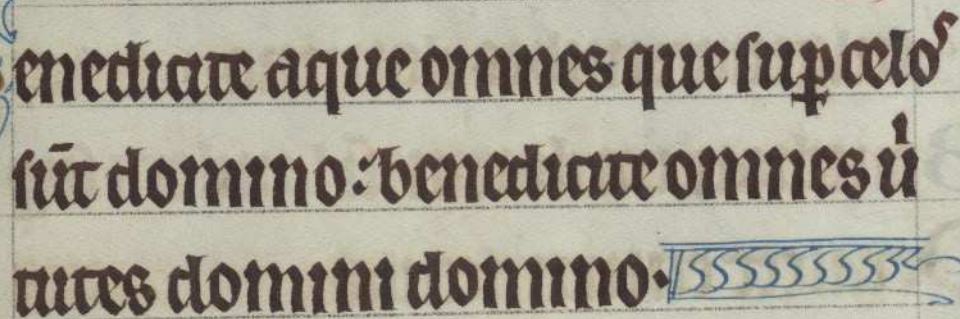 enedicite aque omnes que suꝑ celoˢ
sūt domino: benedicite omnes uͥ
tutes domini domino.